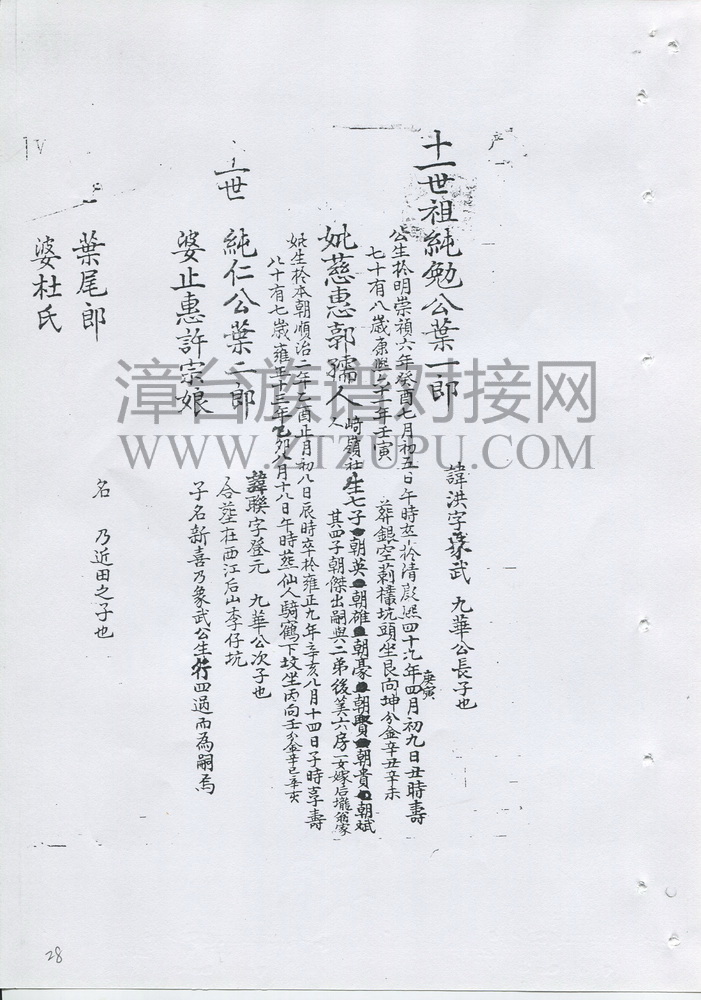 十一世祖純勉公葉一郎
諱洪字象武 九華公長子也
公生於明崇禎六年癸酉七月初五日午時卒於清康熙四十九年庚寅四月初九日丑時壽
七十有八歲康熙六十一年壬寅 葬銀空莿欉坑頭坐艮向坤分金辛丑辛未
妣慈惠郭孺人
崎嶺社人生七子朝英朝雄朝豪朝賢朝貴朝斌
其四子朝傑出嗣與二弟後筭六房一女嫁后壠翁家
妣生於本朝順治二年乙酉正月初八日辰時卒於雍正九年辛亥八月十四日子時享壽
八十有七歲雍正十三年乙卯八月十八日午時塟仙人騎鶴下坟坐丙向壬分金辛巳辛亥
十一世
純仁公葉二郎
諱聯字登元 九華公次子也
合塟在西江后山李仔坑
婆止惠許宗娘
子名新喜乃象武公生行四過而為嗣焉
葉尾郎
名 乃近田之子也
婆杜氏
28
漳台族谱对接网
WWW.ZTZUPU.COM